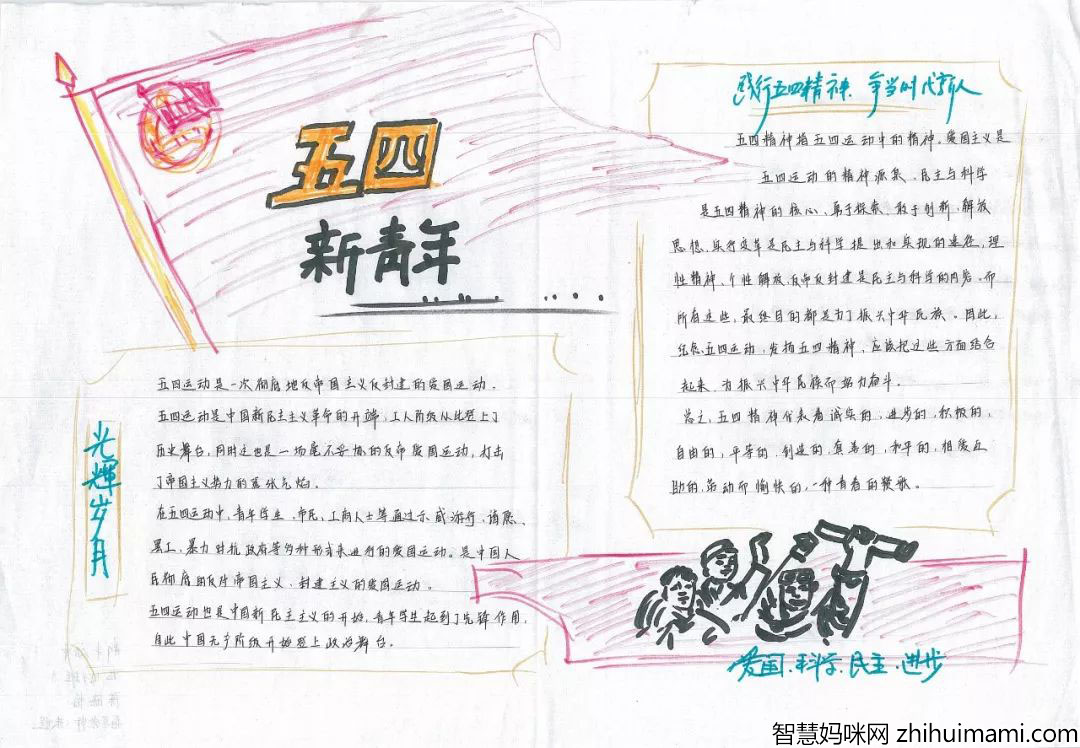 五四
新青年
践行五四精神、争当时代新人
五四精神指五四运动中的精神。爱国主义是
五四运动的精神源泉、民主与科学
是五四精神的核心、勇于探索、敢于创新、解放
思想、实行变革是民主与科学提出和实现的途径，理
性精神、个性解放、反帝反封建是民主与科学的内容。而
所有这些，最终目的都是为了振兴中华民族。因此，
纪念五四运动，发扬五四精神，应该把这些方面结合
起来，为振兴中华民族而努力奋斗。
总之，五四精神代表着诚实的，进步的，积极的，
自由的，平等的，创造的，真善的，和平的，相爱互
助的，劳动而愉快的，一种青春的赞歌。
光辉岁月
五四运动是一次彻底地反帝国主义反封建的爱国运动。
五四运动是中国新民主主义革命的开端，工人阶级从此登上了
历史舞台，同时这也是一场毫不妥协的反帝爱国运动，打击
了帝国主义势力的嚣张气焰。
在五四运动中，青年学生、市民、工商人士等通过示威游行、请愿、
罢工、暴力对抗政府等多种形式来进行的爱国运动。是中国人
民彻底的反对帝国主义、封建主义的爱国运动。
五四运动也是中国新民主主义的开始，青年学生起到了先锋作用，
自此中国无产阶级开始登上政治舞台。
爱国、科学、民主、进步
智慧妈咪网 zhihuimami.com